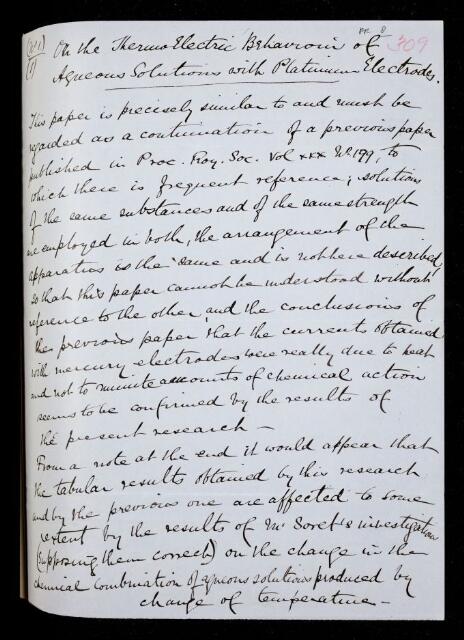 On the Thermo Electric Behaviour of 309
Aqueous Solutions with Platinum Electrodes.
This paper is precisely similar to and must be
regarded as a continuation of a previous paper
published in Proc. Roy. Soc. Vol xxx No 199, to
which there is frequent reference; solutions
of the same substances and of the same strength
are employed in both, the arrangement of the
apparatus is the same and is not here described,
so that this paper cannot be understood without
reference to the other, and the conclusions of
the previous paper that the currents obtained
with mercury electrodes were really due to heat
and not to minute amounts of chemical action
seems to be confirmed by the results of
the present research —
From a note at the end it would appear that
the tabular results obtained by this research
and by the previous one are affected to some
extent by the results of Mr Soret's investigation
(supposing them correct) on the change in the
chemical combination of aqueous solutions produced by
change of temperature —